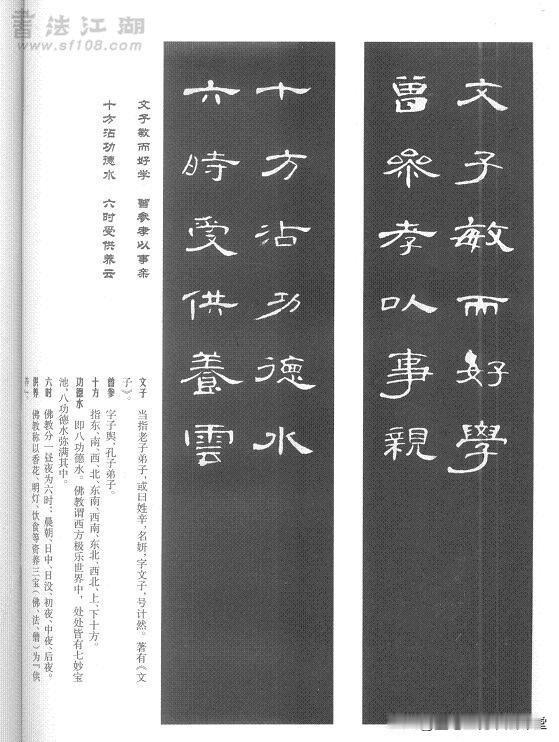 書法江湖
www.sf108.com
文子敏而好學
曾參孝以事親
十方沾功德水
六時受供養雲
文子敏而好学　曾参孝以事亲
十方沾功德水　六时受供养云
文子　当指老子弟子，或曰姓辛，名妍，字文子，号计然。著有《文
子》。
曾参　字子舆，孔子弟子。
十方　指东、南、西、北、东南、西南、东北、西北、上、下十方。
功德水　即八功德水。佛教谓西方极乐世界中，处处皆有七妙宝
池，八功德水弥满其中。
六时　佛教分一昼夜为六时：晨朝、日中、日没、初夜、中夜、后夜。
供养　佛教称以香花、明灯、饮食等资养三宝（佛、法、僧）为『供